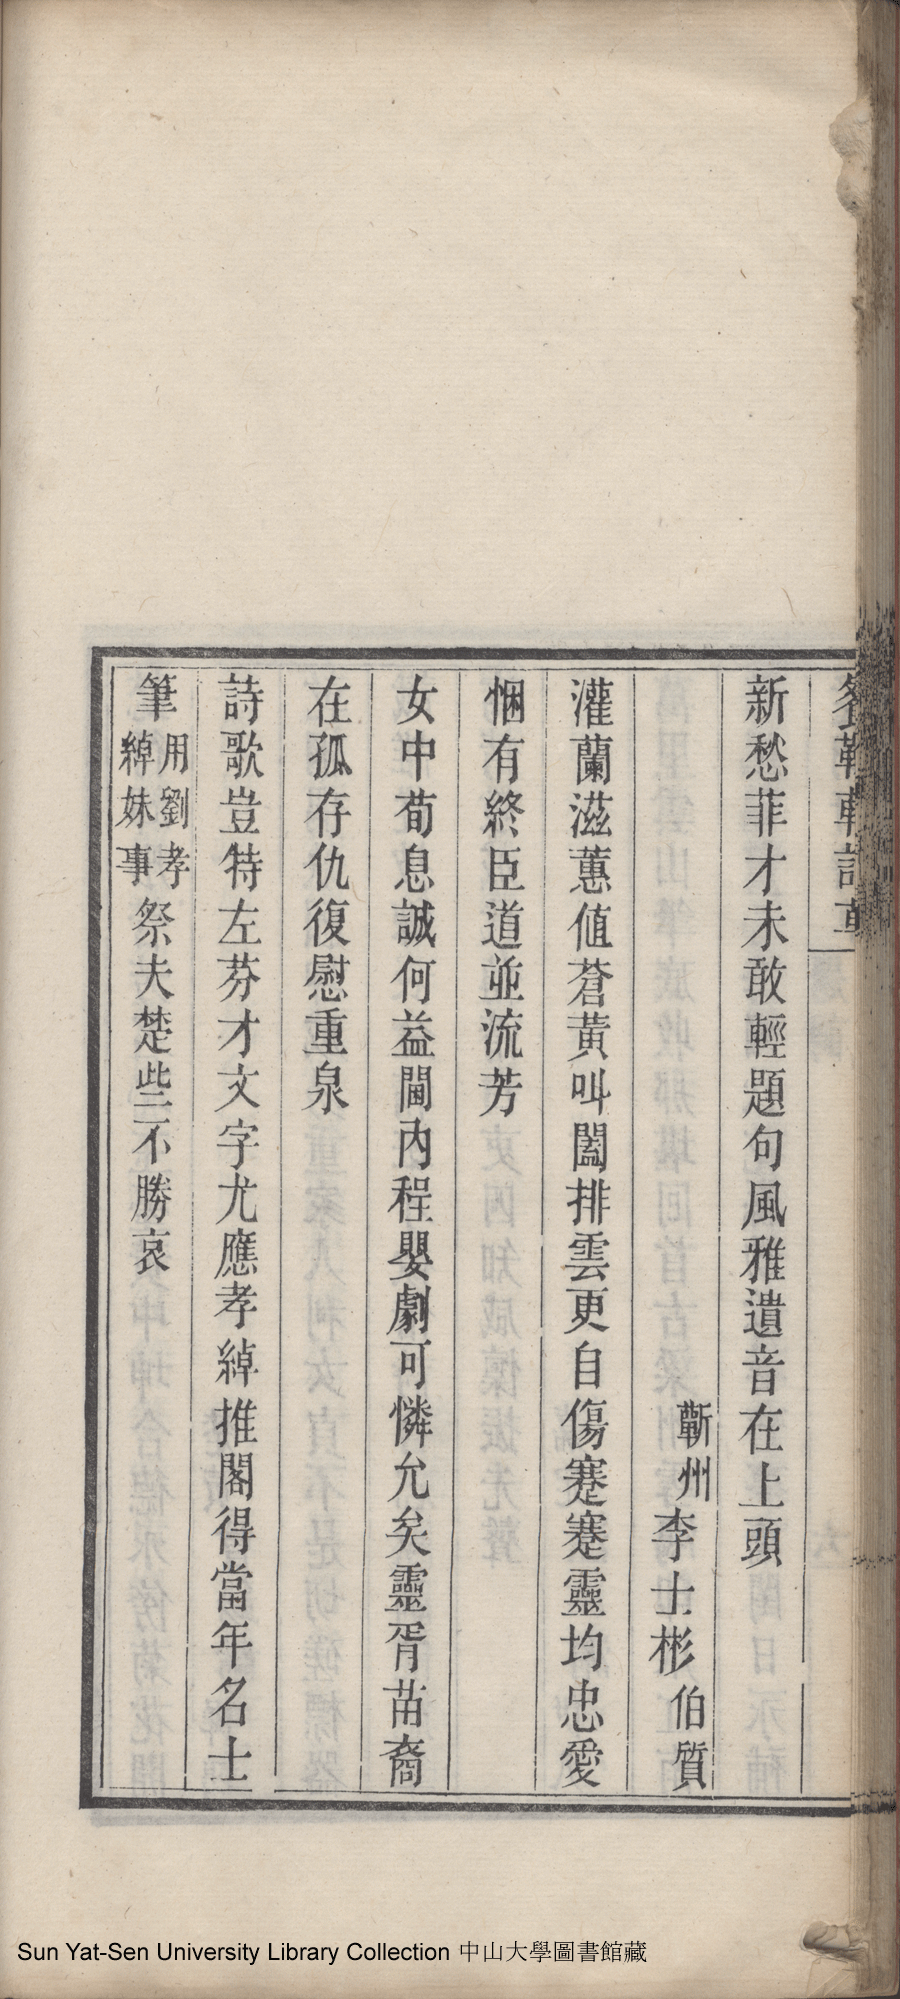 新愁菲才未敢輕題句風雅遺音在上頭
蘄州李士彬伯質
灌蘭滋蕙値蒼黃叫閶排雲更自傷蹇蹇靈均忠愛
悃有終臣道並流芳
女中荀息誠何益閫內程嬰劇可憐允矣靈胥苗裔
在孤存仇復慰重泉
詩歌豈特左芬才文字尤應孝綽推閣得當年名士
筆用劉孝綽妹事祭夫楚些不勝哀
Sun Yat-Sen University Library Collection 中山大學圖書館藏